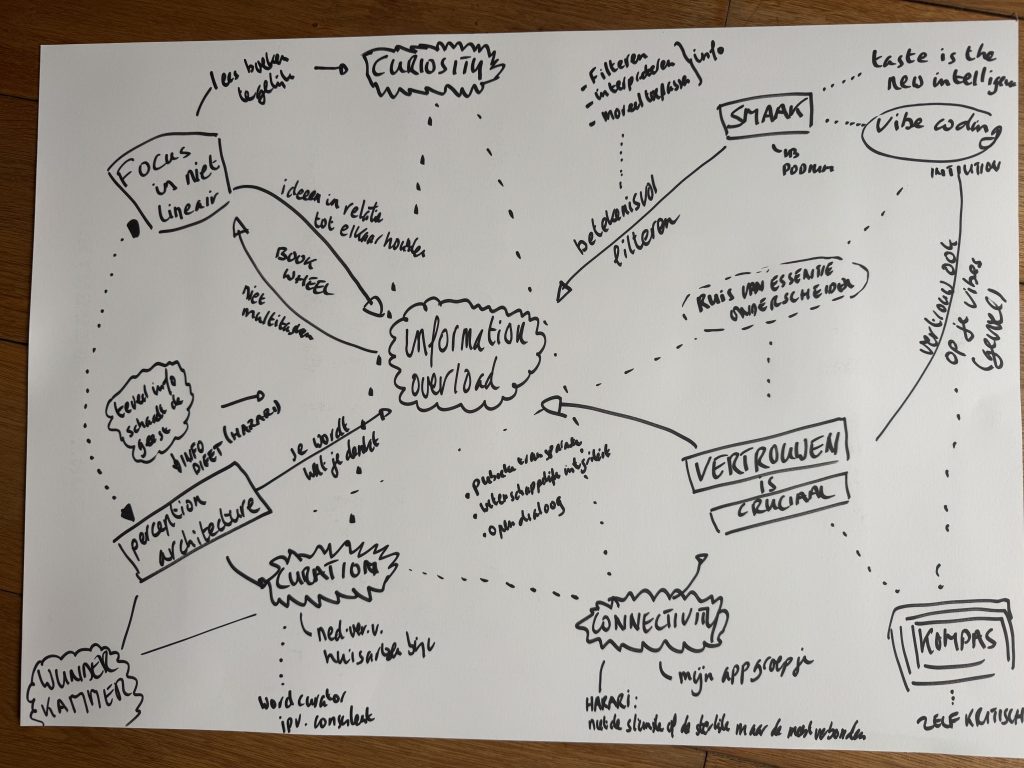 lees boeken
tegelijk
CURIOSITY
- Filteren
- interpreteren
- moreel toepassen
info
SMAAK
NB
PODIUM
taste is the
new intelligen
Vibe coding
INTUTION
Focus
in niet
lineair
ideeen in relatie
tot elkaar houden
BOOK
WHEEL
niet
multitasken
betekenisvol
filteren
RUIS VAN ESSENTIE
ONDERSCHEIDEN
vertrouw ook
op je vibes
(gevoel)
information
overload
teveel info
schaadt de
geest
INFO
DIEET (HARARI)
je wordt
wat je denkt
perception
architecture
• wetenschappelijke integriteit
• open dialoog
VERTROUWEN
IS
CRUCIAAL
CURATION
ned. ver. v.
huisartsen bijv
word curator
ipv. consulent
WUNDER
KAMMER
CONNECTIVITY
mijn appgroepje
HARARI:
niet de slimste of de sterkste maar de meest verbonden
KOMPAS
ZELF KRITISCH